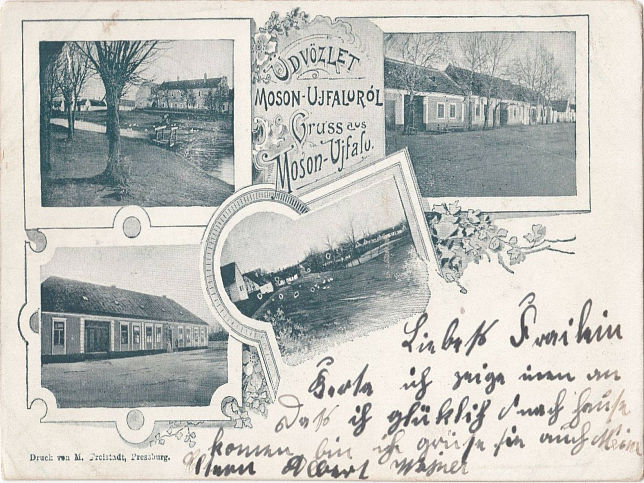 ÜDVÖZLET
MOSON-UJFALURÓL
Gruss aus
Moson-Ujfalu.
Liebess Frailein
Berta ich zeige inen an
Das ich glüklich nach Hause
komen bin ich grüse sie auch Meine
Eltern Albert
Druck von M. Freistadt, Pressburg.